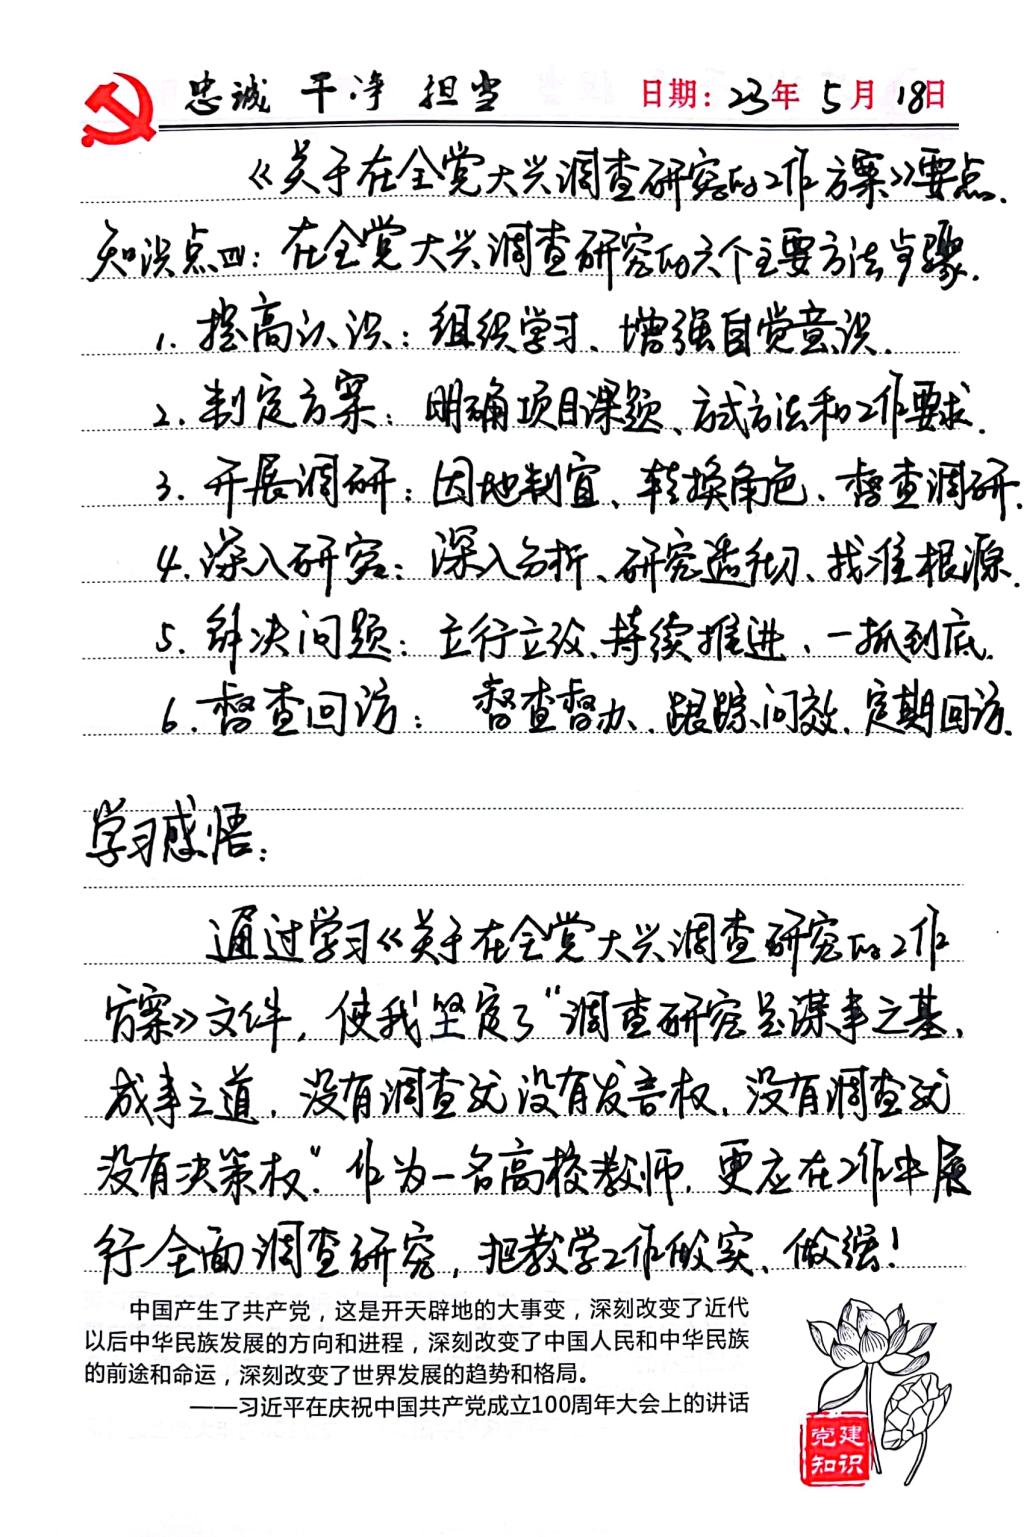 忠诚 干净 担当 日期：23年5月18日
《关于在全党大兴调查研究的工作方案》要点.
知识点四：在全党大兴调查研究的六个主要方法步骤.
1. 提高认识：组织学习、增强自觉意识.
2. 制定方案：明确项目课题、方式方法和工作要求.
3. 开展调研：因地制宜、转换角色、督查调研.
4. 深入研究：深入分析、研究透彻、找准根源.
5. 解决问题：立行立改、持续推进、一抓到底.
6. 督查回访： 督查督办、跟踪问效、定期回访.
学习感悟：
通过学习《关于在全党大兴调查研究的工作
方案》文件，使我坚定了“调查研究是谋事之基、
成事之道，没有调查就没有发言权，没有调查就
没有决策权”。作为一名高校教师，更应在工作中履
行全面调查研究，把教学工作做实、做强！
中国产生了共产党，这是开天辟地的大事变，深刻改变了近代
以后中华民族发展的方向和进程，深刻改变了中国人民和中华民族
的前途和命运，深刻改变了世界发展的趋势和格局。
——习近平在庆祝中国共产党成立100周年大会上的讲话
党建
知识